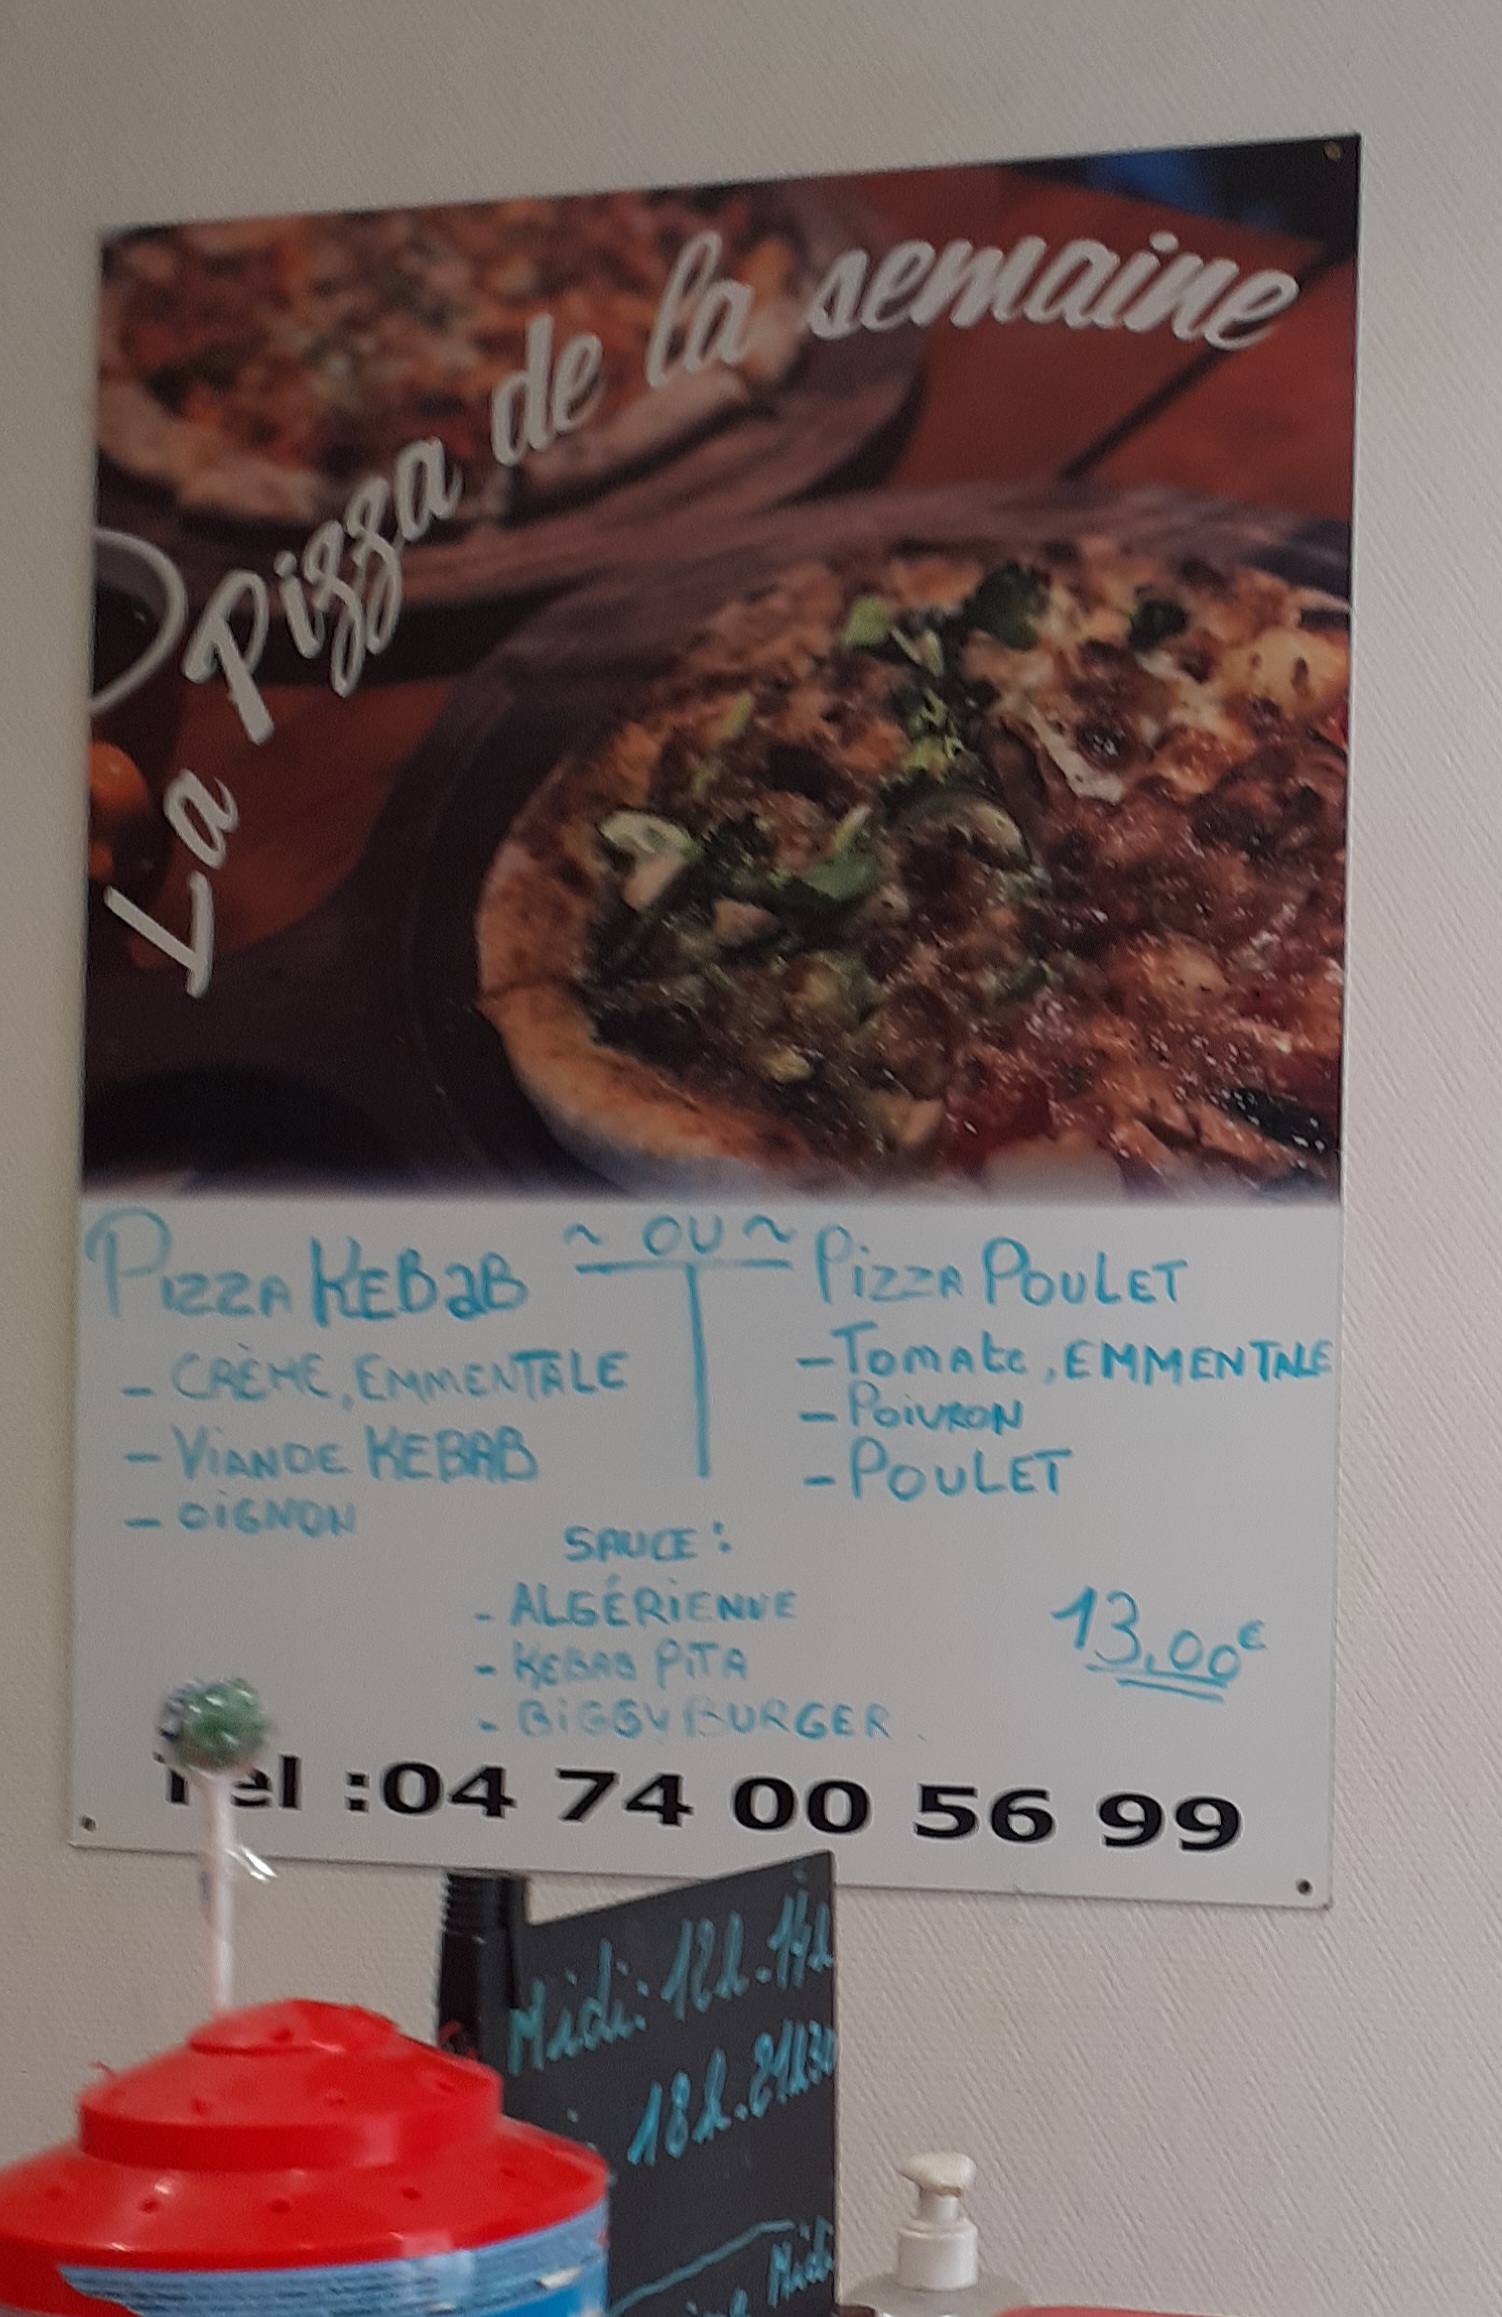 La Pizza de la semaine
PIZZA KEBAB ~ OU ~ PIZZA POULET
- CRÈME, EMMENTALE
- VIANDE KEBAB
- OIGNON
- Tomate, EMMENTALE
- POIVRON
- POULET
SAUCE :
- ALGÉRIENNE
- KEBAB PITA
- BIGGY BURGER
13.00€
Tél :04 74 00 56 99
Midi: 12h.14h
18h.21h30
Midi